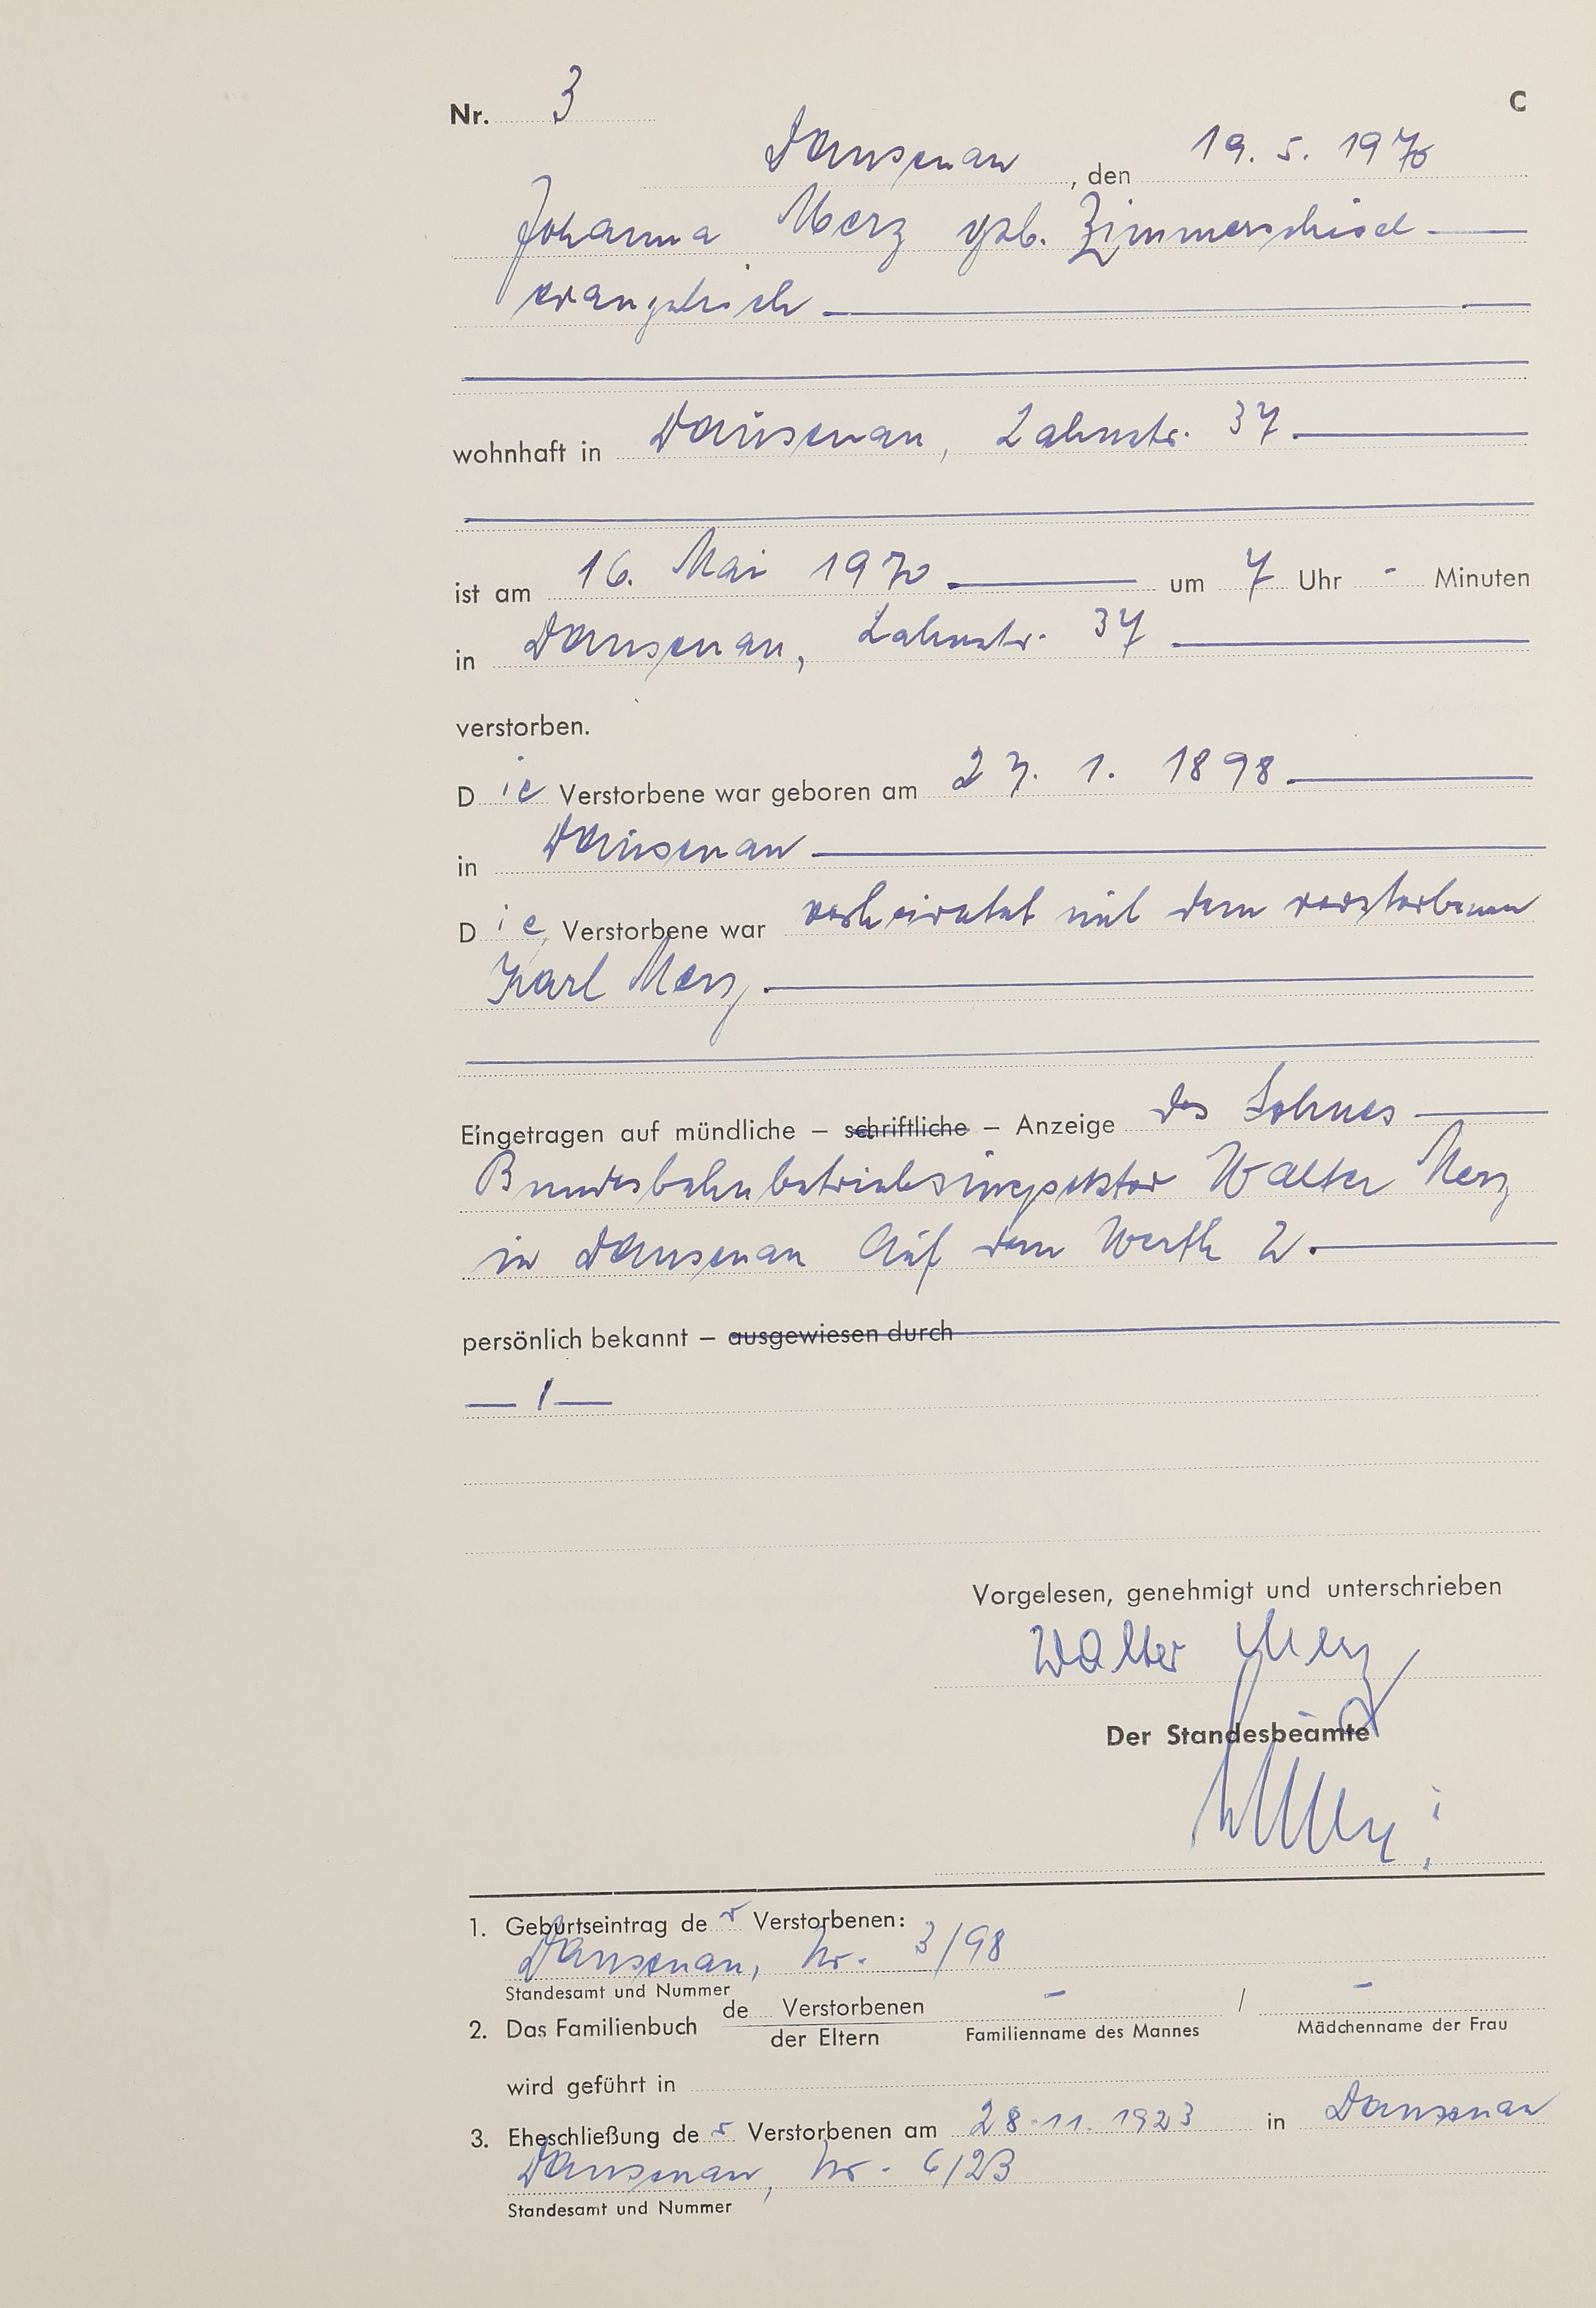 Nr. 3 C
Dausenau, den 19. 5. 1970
Johanna Merz geb. Zimmerschied
evangelisch
wohnhaft in Dausenau, Lahnstr. 37
ist am 16. Mai 1970 um 7 Uhr - Minuten
in Dausenau, Lahnstr. 37
verstorben.
Die Verstorbene war geboren am 27. 1. 1898
in Dausenau
Die Verstorbene war verheiratet mit dem verstorbenen
Karl Merz
Eingetragen auf mündliche – schriftliche – Anzeige des Sohnes
Bundesbahnbetriebsinspektor Walter Merz
in Dausenau Auf dem Werth 2.
persönlich bekannt – ausgewiesen durch
— / —
Vorgelesen, genehmigt und unterschrieben
Walter Merz
Der Standesbeamte
1. Geburtseintrag der Verstorbenen:
Dausenau, Nr. 3/98
Standesamt und Nummer
2. Das Familienbuch de Verstorbenen - / -
der Eltern Familienname des Mannes Mädchenname der Frau
wird geführt in
3. Eheschließung der Verstorbenen am 28.11.1923 in Dausenau
Dausenau, Nr. 6/23
Standesamt und Nummer